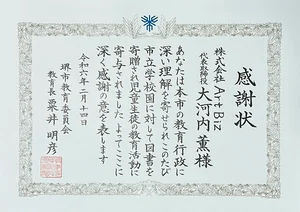 感謝状
株式会社 Art Biz
代表取締役 大河内 薫 様
あなたは本市の教育行政に
深い理解を寄せられこのたび
市立学校園に対して図書を
寄贈され児童生徒の教育活動に
寄与されました よってここに
深く感謝の意を表します
令和六年二月十四日
堺市教育委員会
教育長 粟井明彦